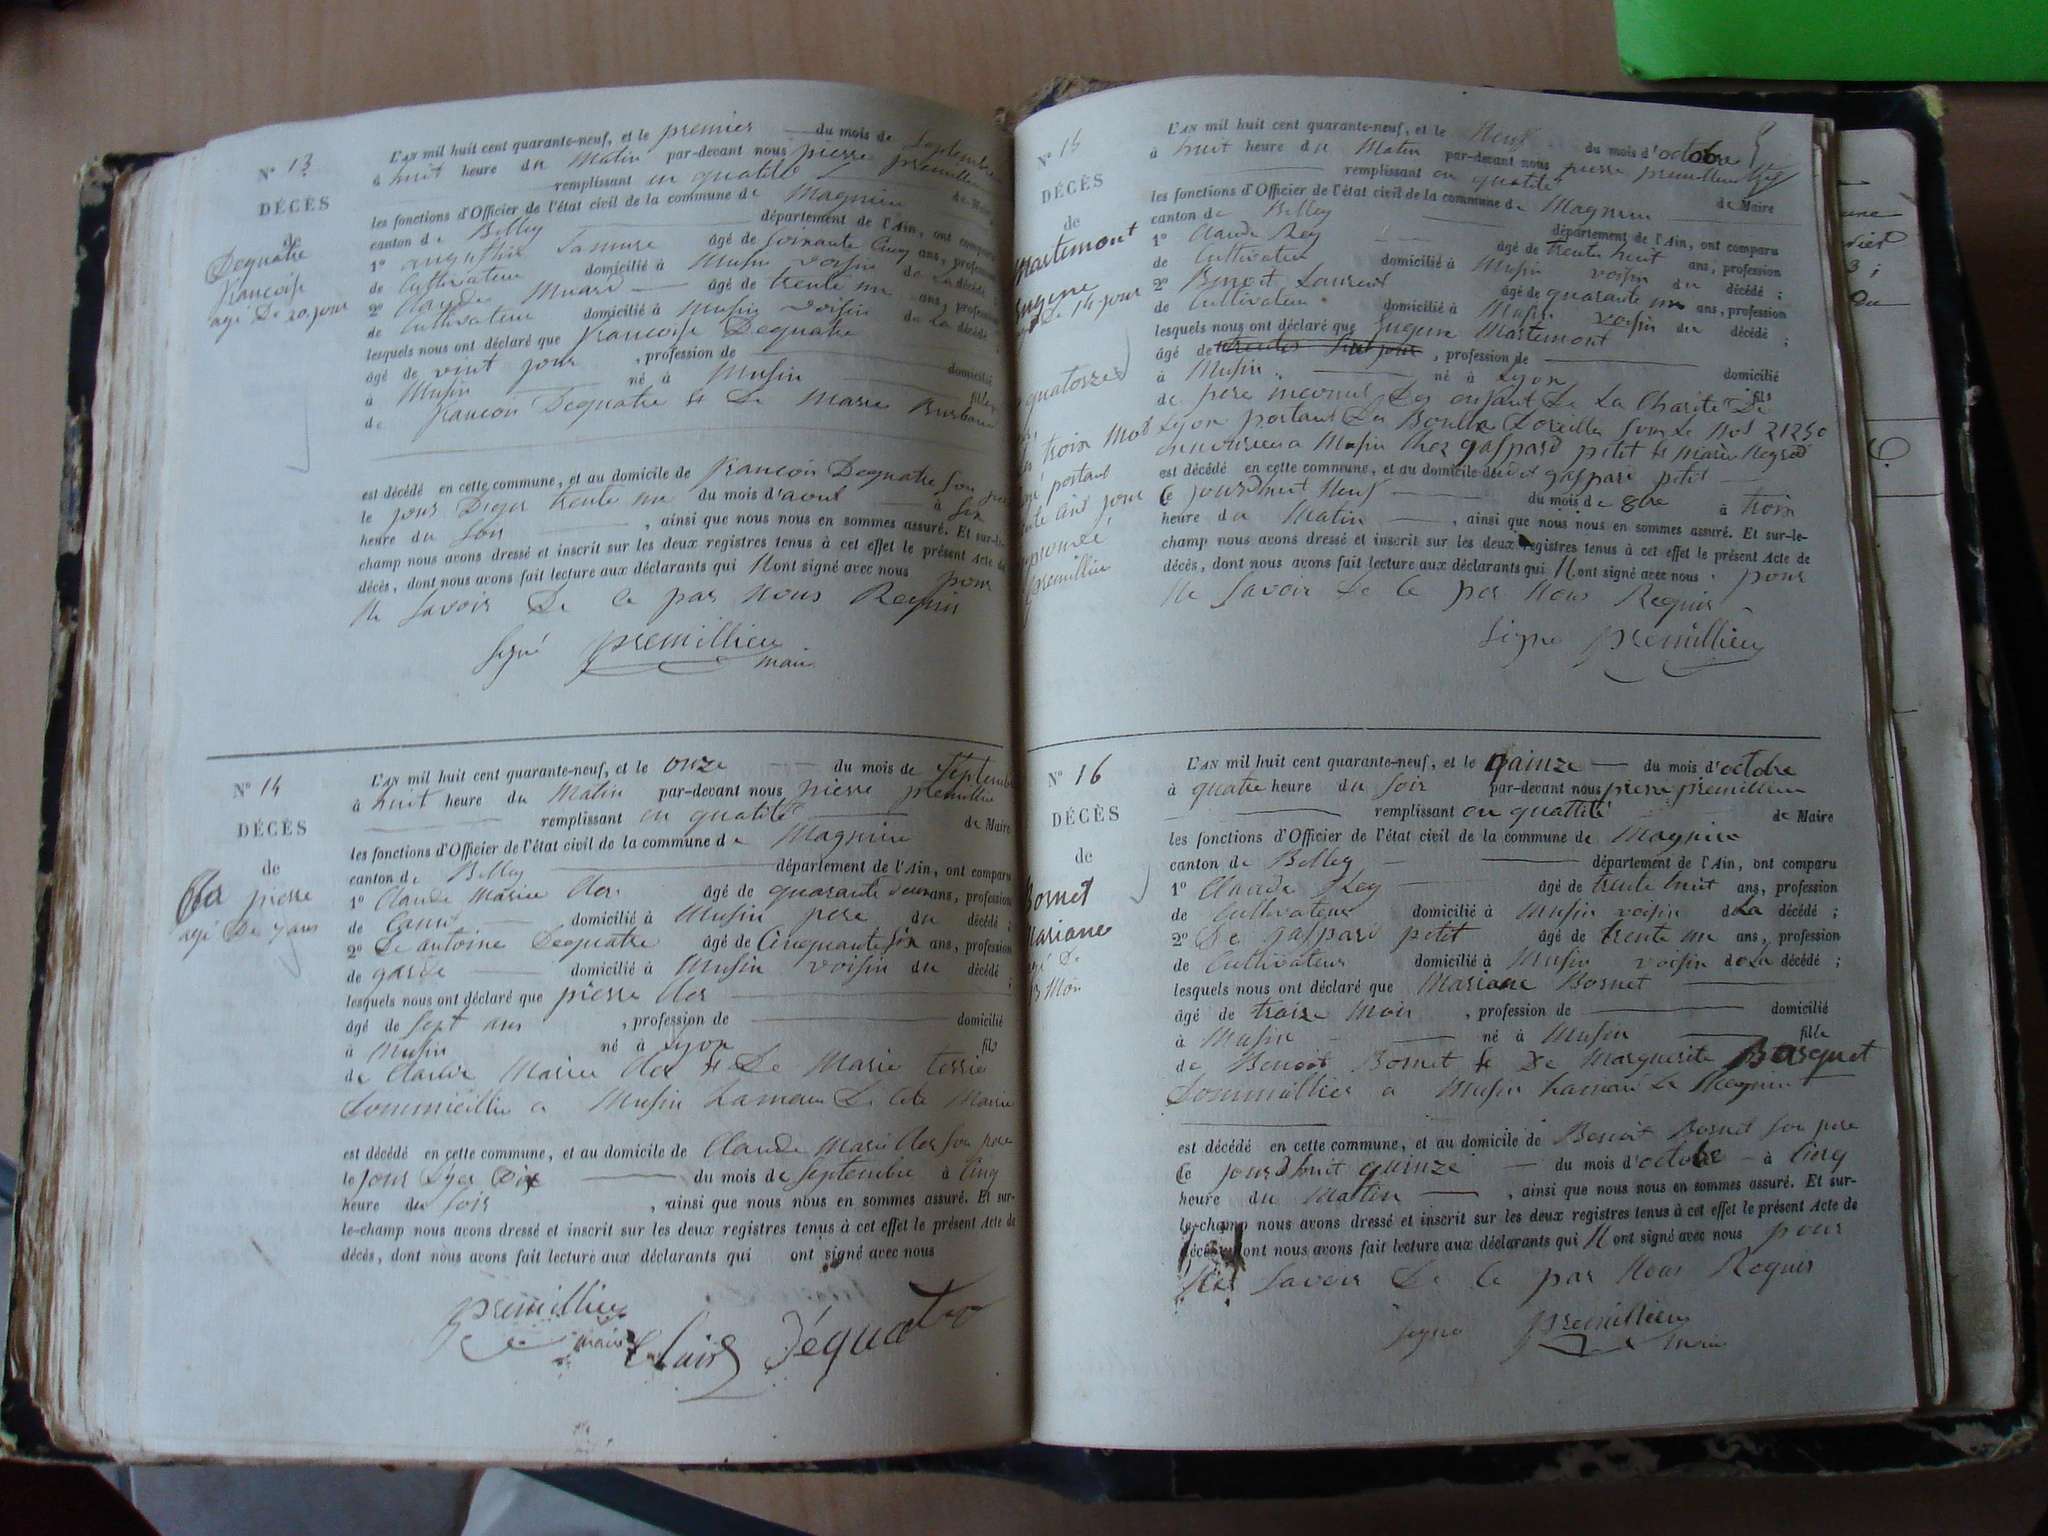 N° 13
DÉCÈS
de
Dequatre
francoise
agé De 20 jour
L'AN mil huit cent quarante-neuf, et le premier du mois de Septembre
à huit heure du Matin par-devant nous pierre premillieu
remplissant en qualité de Maire
les fonctions d'Officier de l'état civil de la commune de Magnieu
canton de Belley département de l'Ain, ont comparu
1° âgé de soixante Cinq ans, profession
de Cultivateur domicilié à Musin voisin de La décédé ;
2° Claude âgé de trente un ans, profession
de Cultivateur domicilié à Musin voisin de La décédé ;
lesquels nous ont déclaré que francoise Dequatre
âgé de vint jour , profession de domicilié
à Musin né à Musin fille
de francois Dequatre et De Marie
est décédé en cette commune, et au domicile de francois Dequatre son pere
le jour Dyer trente un du mois d'aout à Six
heure du soir , ainsi que nous nous en sommes assuré. Et sur-le-
champ nous avons dressé et inscrit sur les deux registres tenus à cet effet le présent Acte de
décès, dont nous avons fait lecture aux déclarants qui N ont signé avec nous pour
Ne Savoir De Ce par Nous Requis
Signé premillieu
maire
N° 14
DÉCÈS
de
Cler pierre
agé De 7 ans
L'AN mil huit cent quarante-neuf, et le onze du mois de Septembre
à huit heure du Matin par-devant nous pierre premillieu
remplissant en qualité de Maire
les fonctions d'Officier de l'état civil de la commune de Magnieu
canton de Belley département de l'Ain, ont comparu
1° Claude Marie Cler âgé de quarante deux ans, profession
de domicilié à Musin pere du décédé ;
2° De antoine Dequatre âgé de Cinquante six ans, profession
de garde domicilié à Musin voisin du décédé ;
lesquels nous ont déclaré que pierre Cler
âgé de Sept ans , profession de domicilié
à Musin né à Lyon fils
de Marie Cler et De Marie
a Musin hameau De
est décédé en cette commune, et au domicile de Claude Marie Cler Son pere
le jour Dyer Dix du mois de Septembre à Cinq
heure du Soir , ainsi que nous nous en sommes assuré. Et sur-
le-champ nous avons dressé et inscrit sur les deux registres tenus à cet effet le présent Acte de
décès, dont nous avons fait lecture aux déclarants qui ont signé avec nous
premillieu
maire Déquatre
N° 15
DÉCÈS
de
Martemont
Eugene
agé De 14 jour
quatorze
trois mot
portant
jour
premillieu
L'AN mil huit cent quarante-neuf, et le Neuf du mois d'octobre
à huit heure du Matin par-devant nous pierre premillieu
remplissant en qualité de Maire
les fonctions d'Officier de l'état civil de la commune de Magnieu
canton de Belley département de l'Ain, ont comparu
1° Claude Rey âgé de trente huit ans, profession
de Cultivateur domicilié à Musin voisin du décédé ;
2° Benoit Laurent âgé de quarante un ans, profession
de Cultivateur domicilié à Musin voisin du décédé ;
lesquels nous ont déclaré que Eugene Martemont
âgé de , profession de domicilié
à Musin né à Lyon fils
de pere inconnu Des enfant De La Charité De
Lyon portant La Boucle Doreille Sous Le No
a Musin Chez gaspard petit et Marie
est décédé en cette commune, et au domicile dudit gaspard petit
Ce jourdhuit Neuf du mois de 8bre à trois
heure du Matin , ainsi que nous nous en sommes assuré. Et sur-le-
champ nous avons dressé et inscrit sur les deux registres tenus à cet effet le présent Acte de
décès, dont nous avons fait lecture aux déclarants qui N ont signé avec nous pour
Ne Savoir De Ce par Nous Requis
Signé premillieu
N° 16
DÉCÈS
de
Bornet
Mariane
agé De
3 Moi
L'AN mil huit cent quarante-neuf, et le quinze du mois d'octobre
à quatre heure du Soir par-devant nous pierre premillieu
remplissant en quattité de Maire
les fonctions d'Officier de l'état civil de la commune de Magnieu
canton de Belley département de l'Ain, ont comparu
1° Claude Rey âgé de trente huit ans, profession
de Cultivateur domicilié à Musin voisin de La décédé ;
2° De gaspard petit âgé de trente un ans, profession
de Cultivateur domicilié à Musin voisin de La décédé ;
lesquels nous ont déclaré que Mariane Bornet
âgé de Mois , profession de domicilié
à Musin né à Musin fille
de Benoit Bornet et De Marguerite
a Musin hameau De Magnieu
est décédé en cette commune, et au domicile de Benoit Bornet Son pere
Ce jourdhuit quinze du mois d'octobre à Cinq
heure du Matin , ainsi que nous nous en sommes assuré. Et sur-
le-champ nous avons dressé et inscrit sur les deux registres tenus à cet effet le présent Acte de
décès, dont nous avons fait lecture aux déclarants qui N ont signé avec nous pour
Ne Savoir De Ce par Nous Requis
Signé premillieu
maire